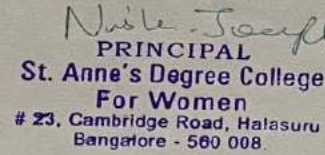 PRINCIPAL
St. Anne's Degree College
For Women
# 23, Cambridge Road, Halasuru
Bangalore - 560 008.